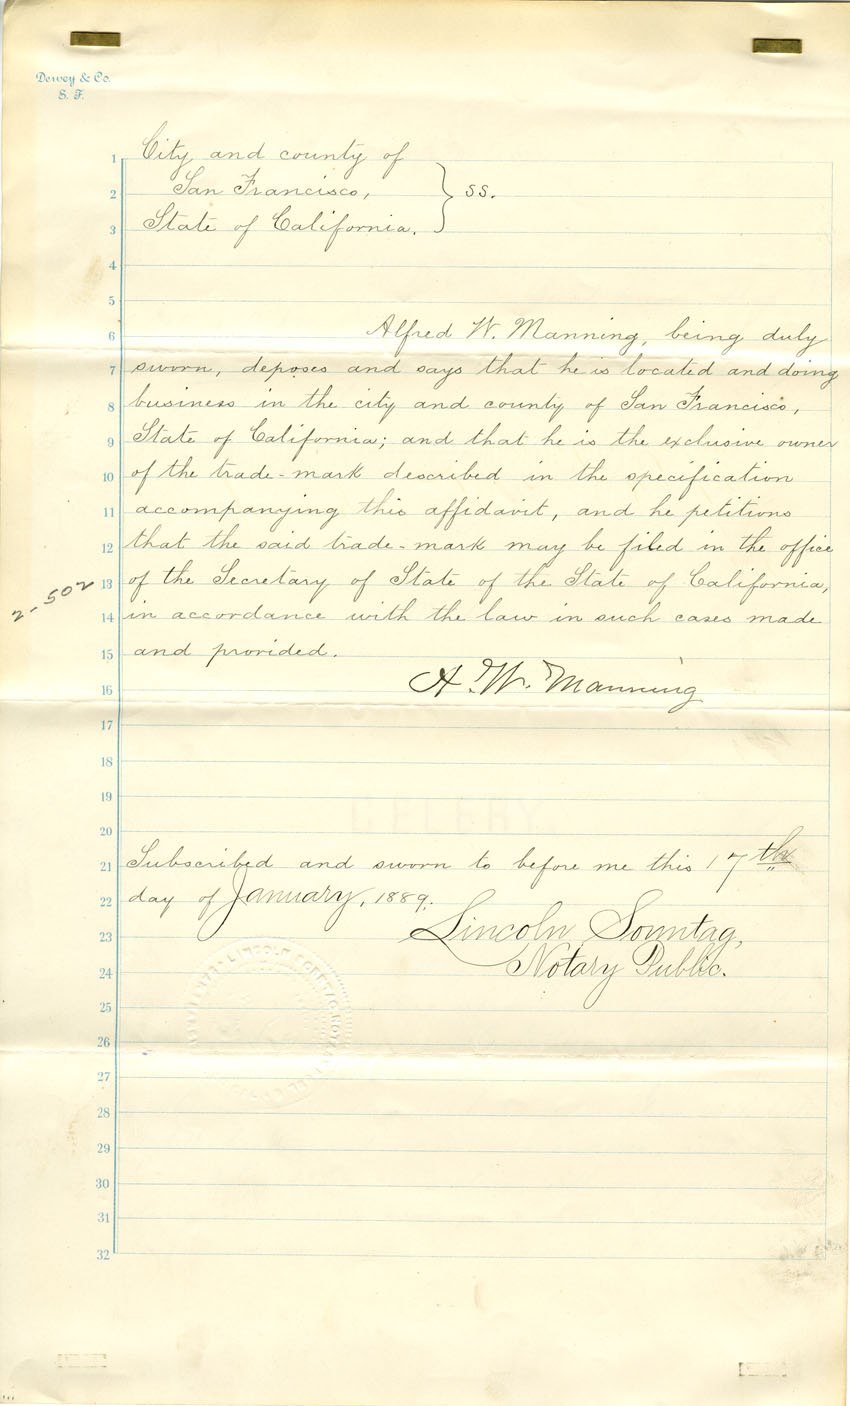 Dewey & Co.
S. F.
1 City and county of
2 San Francisco, } ss.
3 State of California.
4
5
6 Alfred W. Manning, being duly
7 sworn, deposes and says that he is located and doing
8 business in the city and county of San Francisco,
9 State of California; and that he is the exclusive owner
10 of the trade-mark described in the specification
11 accompanying this affidavit, and he petitions
12 that the said trade-mark may be filed in the office
13 of the Secretary of State of the State of California,
2-502
14 in accordance with the law in such cases made
15 and provided.
16 A. W. Manning
17
18
19
20
21 Subscribed and sworn to before me this 17th
22 day of January, 1889.
23 Lincoln Sonntag,
24 Notary Public.
25
26
27
28
29
30
31
32